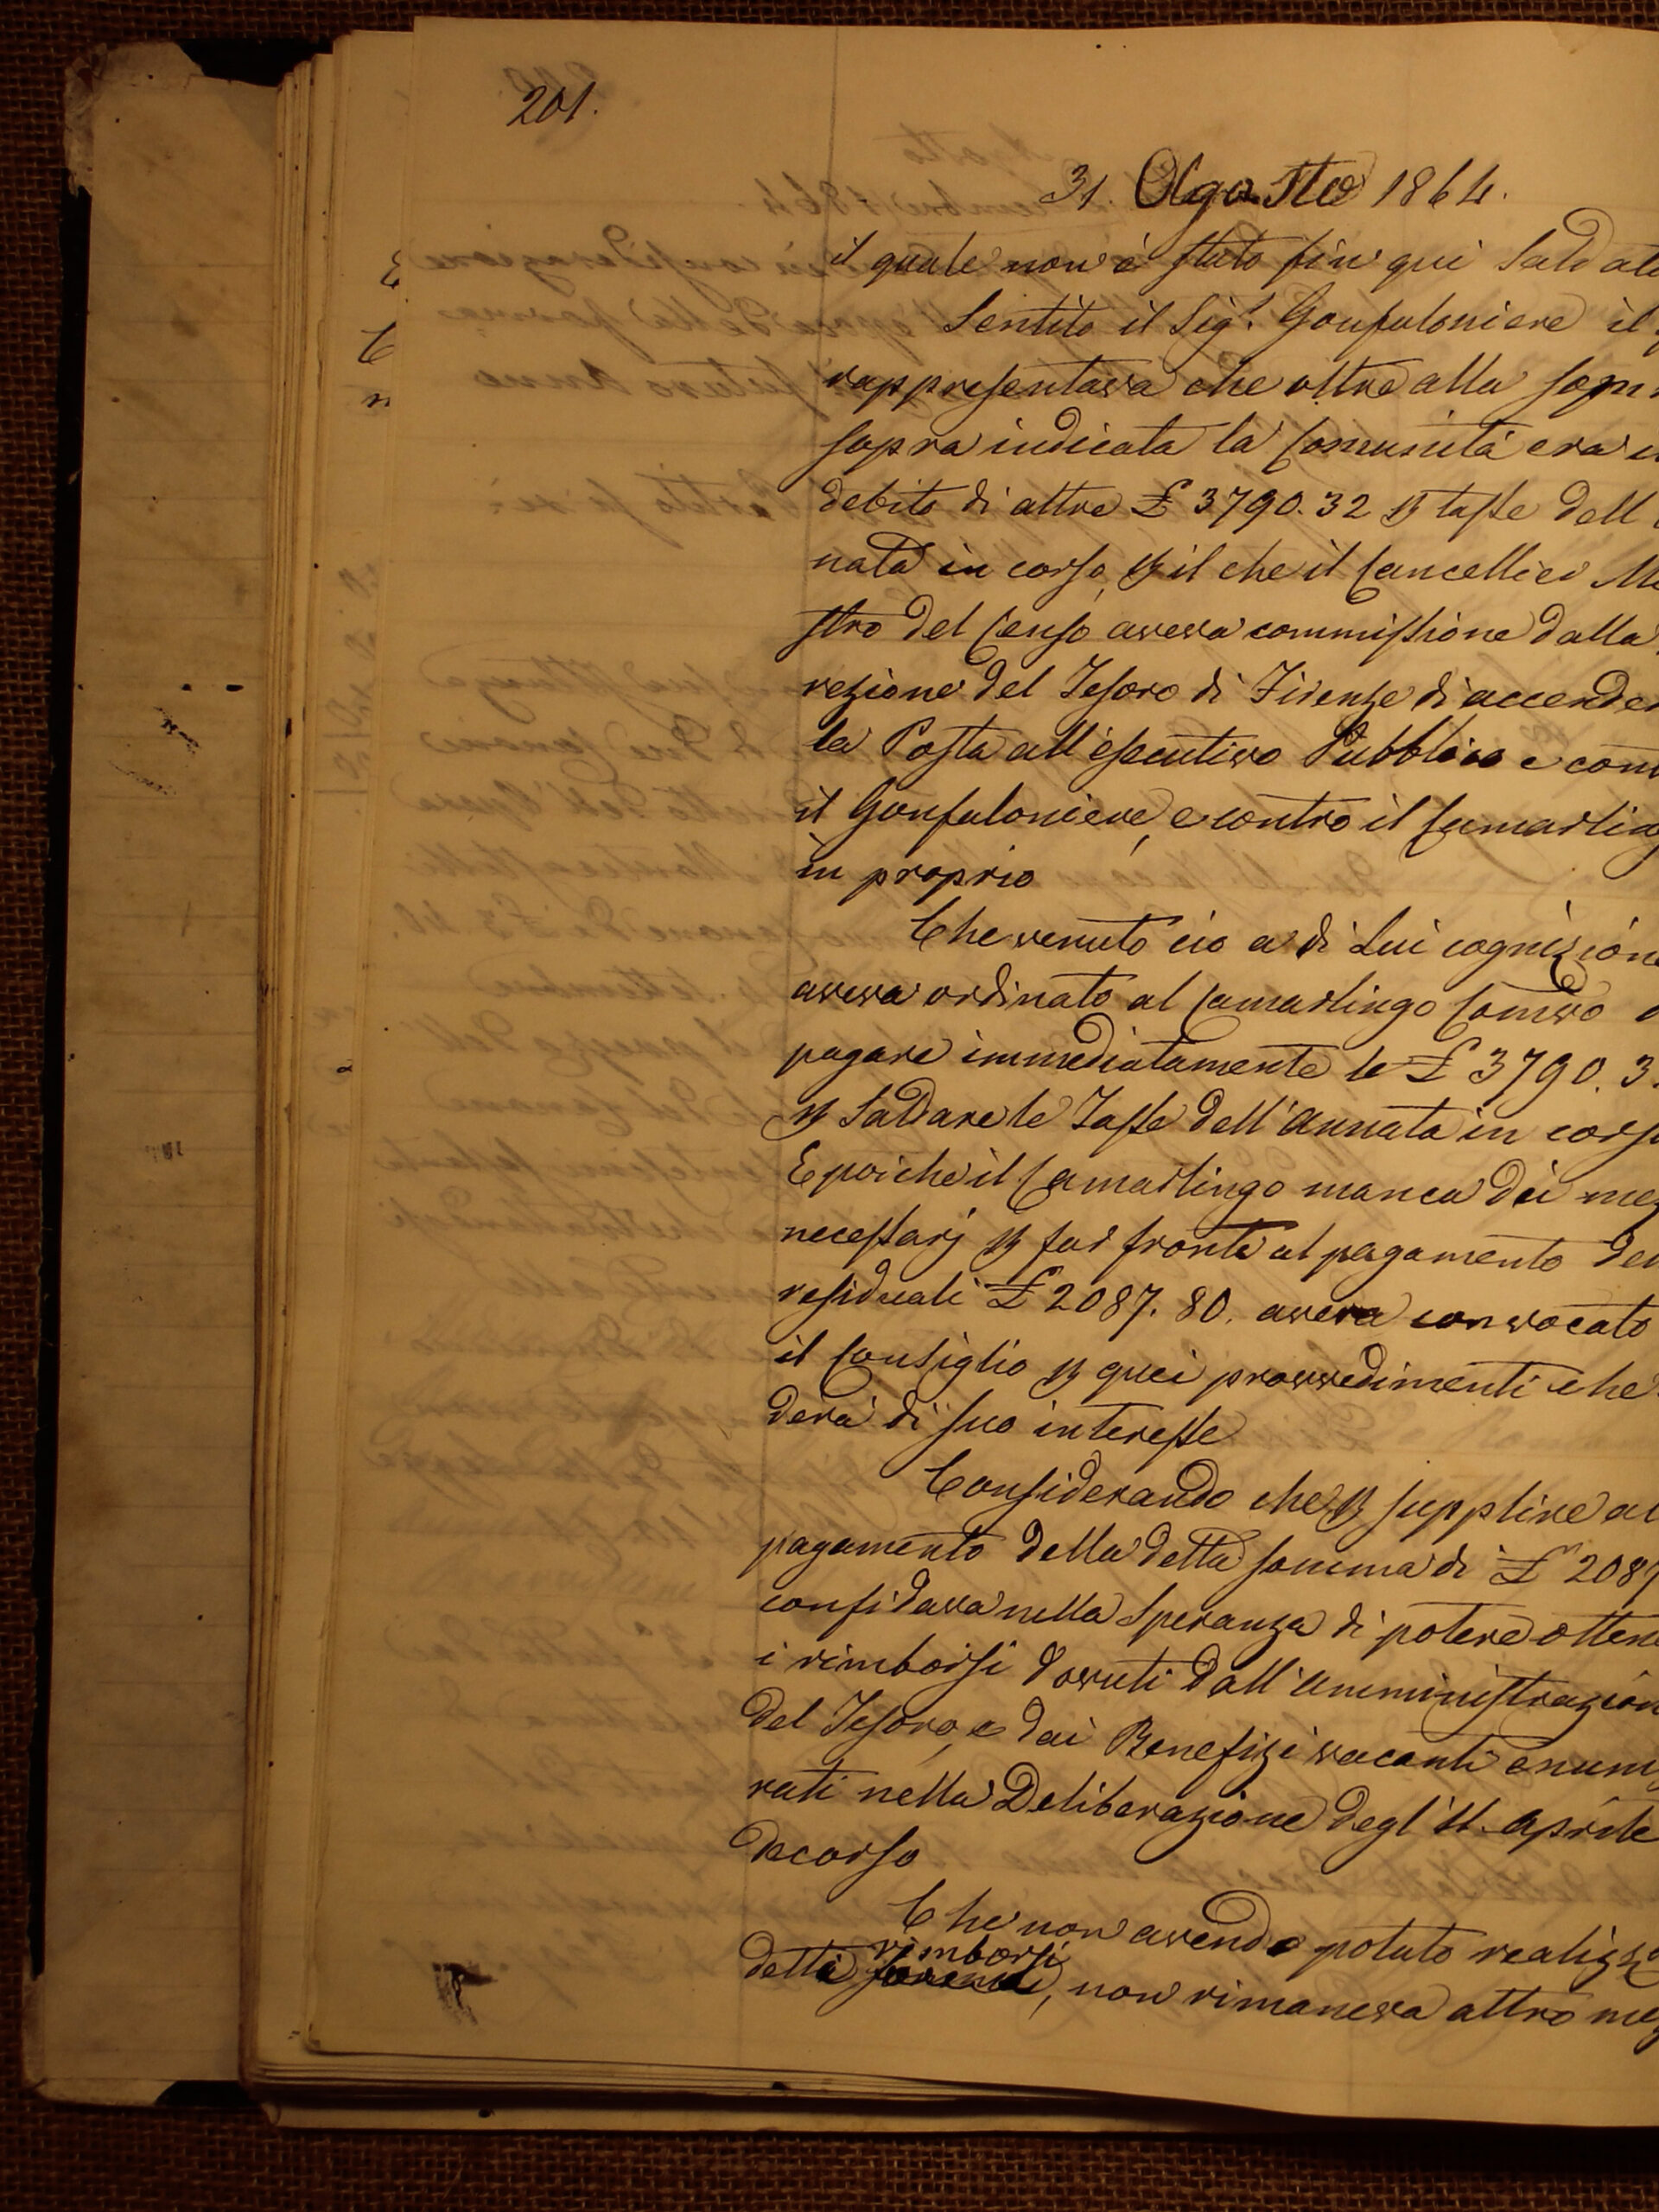 201.
31. Agosto 1864.
il quale non è stato fin qui Saldat
Sentito il Sigr. Gonfaloniere il
rappresentava che oltre alla som
sopra indicata la Comunità era
debito di altre £ 3790.32 p tasse dell
nata in corso, p il che il Cancellier M
stro del Censo aveva commissione dalla
rezione del Tesoro di Firenze di accender
la Posta all'esecutivo Pubblico e cont
il Gonfaloniere, e contro il Camarling
in proprio
Che venuto cio a di Lui cognizion
aveva ordinato al Camarlingo Comvo
pagare immediatamente le £ 3790. 3
p Saldare le Tasse dell'Annata in cors
E poiche il Camarlingo manca dei mez
necessarj p far fronte al pagamento de
residuali £ 2087. 80. aveva convocato
il Consiglio p quei provvedimenti che
derà di suo interesse
Considerando che p supplire al
pagamento della detta somma di £ 208
confidava nella Speranza di potere otten
i rimborsi dovuti dall'Amministrazion
del Tesoro, e dai Benefizi vacanti enum
rati nella Deliberazione degl'11. Aprile
decorso
Che non avendo potuto realizz
rimborsi
detti, non rimaneva altro mez